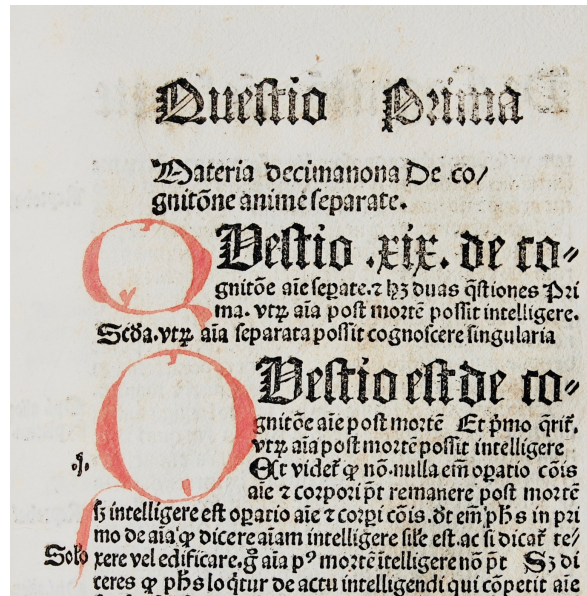 Questio Prima
Materia decimanona De co/
gnitōne anime separate.
QVestio .xix. de co⸗
gnitōe aīe seꝑate. ⁊ hꝫ duas q̄stiones Pri
ma. vtꝝ aīa post mortē possit intelligere.
Scd̄a. vtꝝ aīa separata possit cognoscere singularia
QVestio est de co⸗
gnitōe aīe post mortē Et p̄mo q̄rit̄.
vtꝝ aīa post mortē possit intelligere
.j. Et videt̄ ꝙ nō. nulla em̄ oꝑatio cōis
aīe ⁊ corpori p̄t remanere post mortē
sꝫ intelligere est oꝑatio aīe ⁊ corꝑi cōis. dt em̄ ph̄s in pri
mo de aīa ꝙ dicere aīam intelligere sil̄e est. ac si dicat̄ te/
Solō xere vel edificare. g̊ aīa pꝰ mortē ītelligere nō p̄t Sꝫ di
ceres ꝙ ph̄s loq̄tur de actu intelligendi qui cōpetit aīe